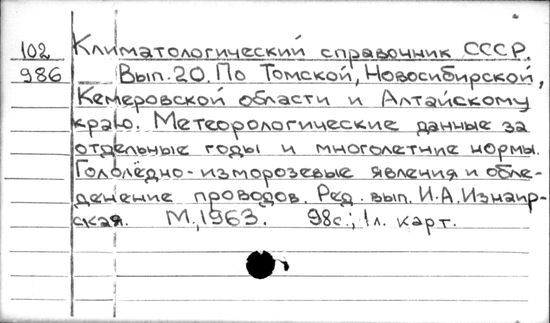 102 Климатологический справочник СССР.
986 Вып.20. По Томской, Новосибирской,
Кемеровской области и Алтайскому
краю. Метеорологические данные за
отдельные годы и многолетние нормы.
Гололёдно-изморозевые явления и обле-
денение проводов. Ред. вып. И.А.Изнаир-
ская. М., 1963. 98с.; 1л. карт.